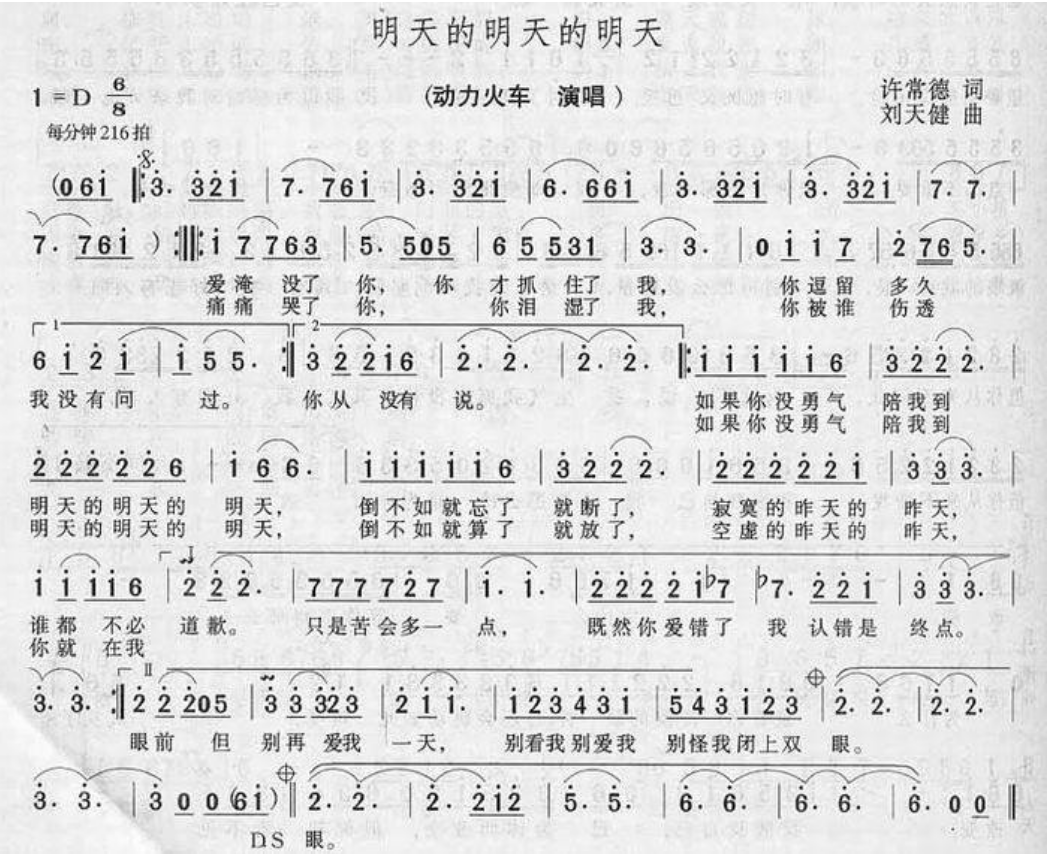 明天的明天的明天
1=D 6/8
(动力火车 演唱)
许常德 词
刘天健 曲
每分钟216拍
(061 3. 321 7. 761 3. 321 6. 661 3. 321 3. 321 7. 7.
7. 761) 1 7 763 5. 505 6 5 531 3. 3. 0 1 1 7 2 765
爱淹 没了 你, 你 才抓 住了 我, 你逗留 多久
痛痛 哭了 你, 你泪 湿了 我, 你被谁 伤透
1 2
6 1 2 1 1 5 5. 3 2 2 1 6 2. 2. 2. 2. 1 1 1 1 1 6 3 2 2 2.
我没有问 过。 你从 没有 说。 如果你没勇气 陪我到
如果你没勇气 陪我到
2 2 2 2 2 6 1 6 6. 1 1 1 1 1 6 3 2 2 2. 2 2 2 2 2 1 3 3 3.
明天的明天的 明天, 倒不如就忘 就断了, 寂寞的昨天的 昨天,
明天的明天的 明天, 倒不如就算了 就放了, 空虚的昨天的 昨天,
I
1 1 1 1 6 2 2 2. 7 7 7 7 2 7 1. 1. 2 2 2 2 1 b7 b7. 2 2 1 3 3 3.
谁都 不必 道歉。 只是苦会多一 点, 既然你爱错了 我 认错是 终点。
你就 在我
II
3. 3. 2 2 205 3 3 323 2 1 1. 1 2 3 4 3 1 5 4 3 1 2 3 2. 2. 2. 2.
眼前 但 别再 爱我 一天, 别看我别爱我 别怪我闭上双 眼。
3. 3. 3 0 0 (61) 2. 2. 2. 212 5. 5. 6. 6. 6. 6. 6. 0 0
D.S 眼。